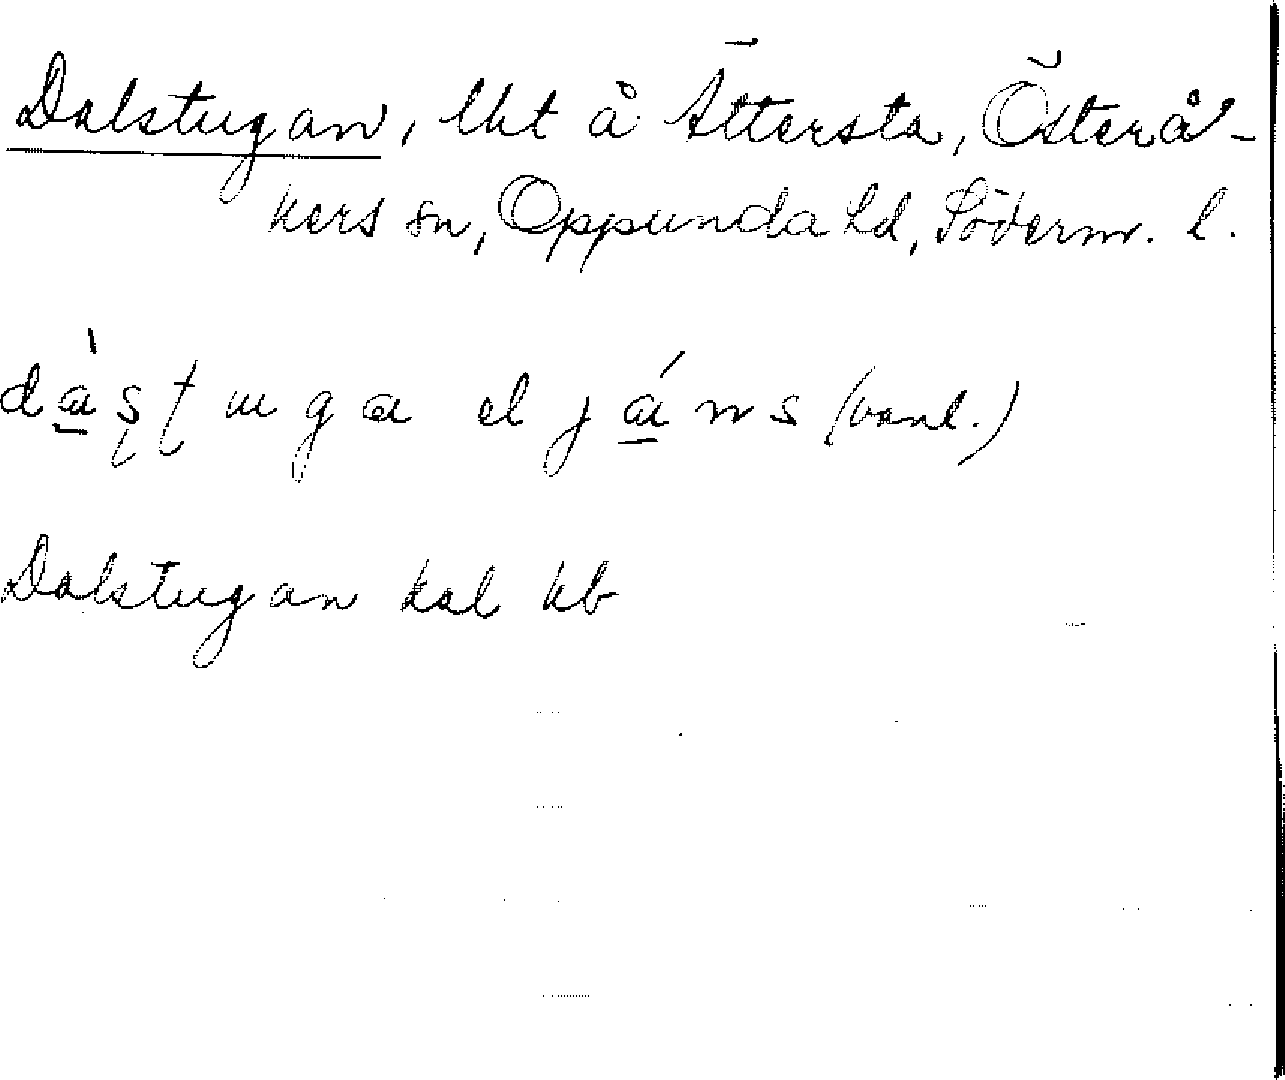 Dalstugan, lht å Ättersta, Österå-
kers sn, Oppunda hd, Söderm. l.
dàʂʈuga el jáns (vanl.)
Dalstugan kal kb